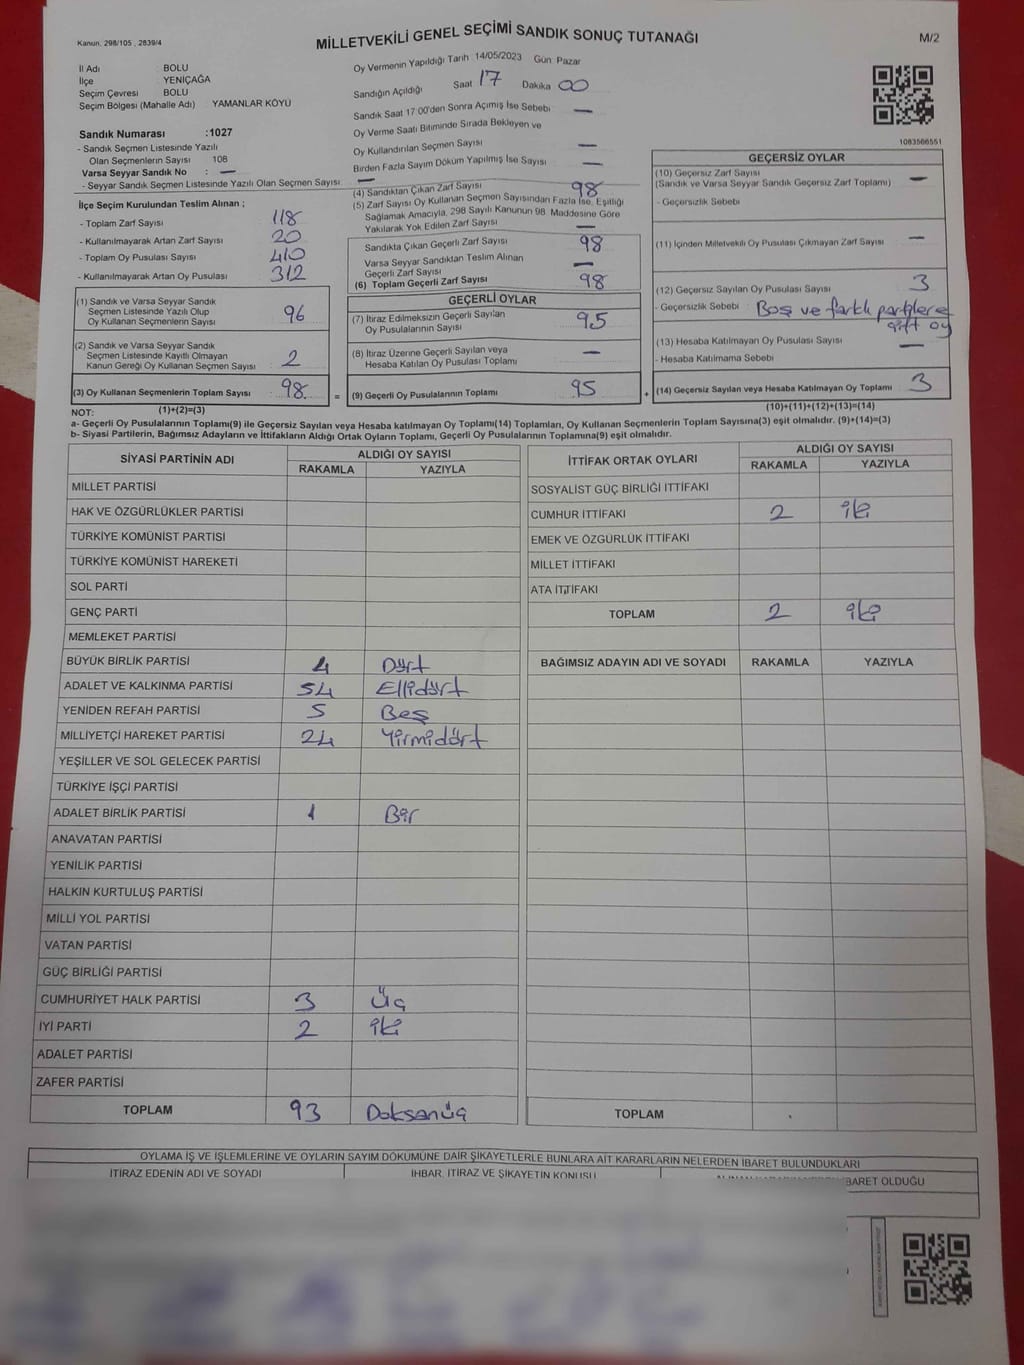 Kanun, 298/105 , 2839/4
MİLLETVEKİLİ GENEL SEÇİMİ SANDIK SONUÇ TUTANAĞI
M/2
İl Adı BOLU
İlçe YENİÇAĞA
Seçim Çevresi BOLU
Seçim Bölgesi (Mahalle Adı) YAMANLAR KÖYÜ
Sandık Numarası :1027
- Sandık Seçmen Listesinde Yazılı
Olan Seçmenlerin Sayısı 108
Varsa Seyyar Sandık No : —
- Seyyar Sandık Seçmen Listesinde Yazılı Olan Seçmen Sayısı —
İlçe Seçim Kurulundan Teslim Alınan ;
- Toplam Zarf Sayısı 118
- Kullanılmayarak Artan Zarf Sayısı 20
- Toplam Oy Pusulası Sayısı 410
- Kullanılmayarak Artan Oy Pusulası 312
(1) Sandık ve Varsa Seyyar Sandık
Seçmen Listesinde Yazılı Olup
Oy Kullanan Seçmenlerin Sayısı 96
(2) Sandık ve Varsa Seyyar Sandık
Seçmen Listesinde Kayıtlı Olmayan
Kanun Gereği Oy Kullanan Seçmen Sayısı 2
(3) Oy Kullanan Seçmenlerin Toplam Sayısı 98
Oy Vermenin Yapıldığı Tarih 14/05/2023 Gün Pazar
Sandığın Açıldığı Saat 17 Dakika 00
Sandık Saat 17:00'den Sonra Açımış İse Sebebi —
Oy Verme Saati Bitiminde Sırada Bekleyen ve
Oy Kullandırılan Seçmen Sayısı —
Birden Fazla Sayım Döküm Yapılmış İse Sayısı —
(4) Sandıktan Çıkan Zarf Sayısı 98
(5) Zarf Sayısı Oy Kullanan Seçmen Sayısından Fazla İse, Eşitliği
Sağlamak Amacıyla, 298 Sayılı Kanunun 98. Maddesine Göre
Yakılarak Yok Edilen Zarf Sayısı —
Sandıkta Çıkan Geçerli Zarf Sayısı 98
Varsa Seyyar Sandıktan Teslim Alınan
Geçerli Zarf Sayısı —
(6) Toplam Geçerli Zarf Sayısı 98
GEÇERLİ OYLAR
(7) İtiraz Edilmeksizin Geçerli Sayılan
Oy Pusulalarının Sayısı 95
(8) İtiraz Üzerine Geçerli Sayılan veya
Hesaba Katılan Oy Pusulası Toplamı —
= (9) Geçerli Oy Pusulalarının Toplamı 95
1083566551
GEÇERSİZ OYLAR
(10) Geçersiz Zarf Sayısı
(Sandık ve Varsa Seyyar Sandık Geçersiz Zarf Toplamı) —
- Geçersizlik Sebebi
(11) İçinden Milletvekili Oy Pusulası Çıkmayan Zarf Sayısı —
(12) Geçersiz Sayılan Oy Pusulası Sayısı 3
- Geçersizlik Sebebi Boş ve farklı partilere
çift oy
(13) Hesaba Katılmayan Oy Pusulası Sayısı —
- Hesaba Katılmama Sebebi
+ (14) Geçersiz Sayılan veya Hesaba Katılmayan Oy Toplamı 3
NOT: (1)+(2)=(3) (10)+(11)+(12)+(13)=(14)
a- Geçerli Oy Pusulalarının Toplamı(9) ile Geçersiz Sayılan veya Hesaba katılmayan Oy Toplamı(14) Toplamları, Oy Kullanan Seçmenlerin Toplam Sayısına(3) eşit olmalıdır. (9)+(14)=(3)
b- Siyasi Partilerin, Bağımsız Adayların ve İttifakların Aldığı Ortak Oyların Toplamı, Geçerli Oy Pusulalarının Toplamına(9) eşit olmalıdır.
SİYASİ PARTİNİN ADI ALDIĞI OY SAYISI
RAKAMLA YAZIYLA
MİLLET PARTİSİ
HAK VE ÖZGÜRLÜKLER PARTİSİ
TÜRKİYE KOMÜNİST PARTİSİ
TÜRKİYE KOMÜNİST HAREKETİ
SOL PARTİ
GENÇ PARTİ
MEMLEKET PARTİSİ
BÜYÜK BİRLİK PARTİSİ 4 Dört
ADALET VE KALKINMA PARTİSİ 54 Ellidört
YENİDEN REFAH PARTİSİ 5 Beş
MİLLİYETÇİ HAREKET PARTİSİ 24 Yirmidört
YEŞİLLER VE SOL GELECEK PARTİSİ
TÜRKİYE İŞÇİ PARTİSİ
ADALET BİRLİK PARTİSİ 1 Bir
ANAVATAN PARTİSİ
YENİLİK PARTİSİ
HALKIN KURTULUŞ PARTİSİ
MİLLİ YOL PARTİSİ
VATAN PARTİSİ
GÜÇ BİRLİĞİ PARTİSİ
CUMHURİYET HALK PARTİSİ 3 Üç
İYİ PARTİ 2 iki
ADALET PARTİSİ
ZAFER PARTİSİ
TOPLAM 93 Doksanüç
İTTİFAK ORTAK OYLARI ALDIĞI OY SAYISI
RAKAMLA YAZIYLA
SOSYALİST GÜÇ BİRLİĞİ İTTİFAKI
CUMHUR İTTİFAKI 2 iki
EMEK VE ÖZGÜRLÜK İTTİFAKI
MİLLET İTTİFAKI
ATA İTTİFAKI
TOPLAM 2 iki
BAĞIMSIZ ADAYIN ADI VE SOYADI RAKAMLA YAZIYLA
TOPLAM
OYLAMA İŞ VE İŞLEMLERİNE VE OYLARIN SAYIM DÖKÜMÜNE DAİR ŞİKAYETLERLE BUNLARA AİT KARARLARIN NELERDEN İBARET BULUNDUKLARI
İTİRAZ EDENİN ADI VE SOYADI İHBAR, İTİRAZ VE ŞİKAYETİN KONUSU
BARET OLDUĞU